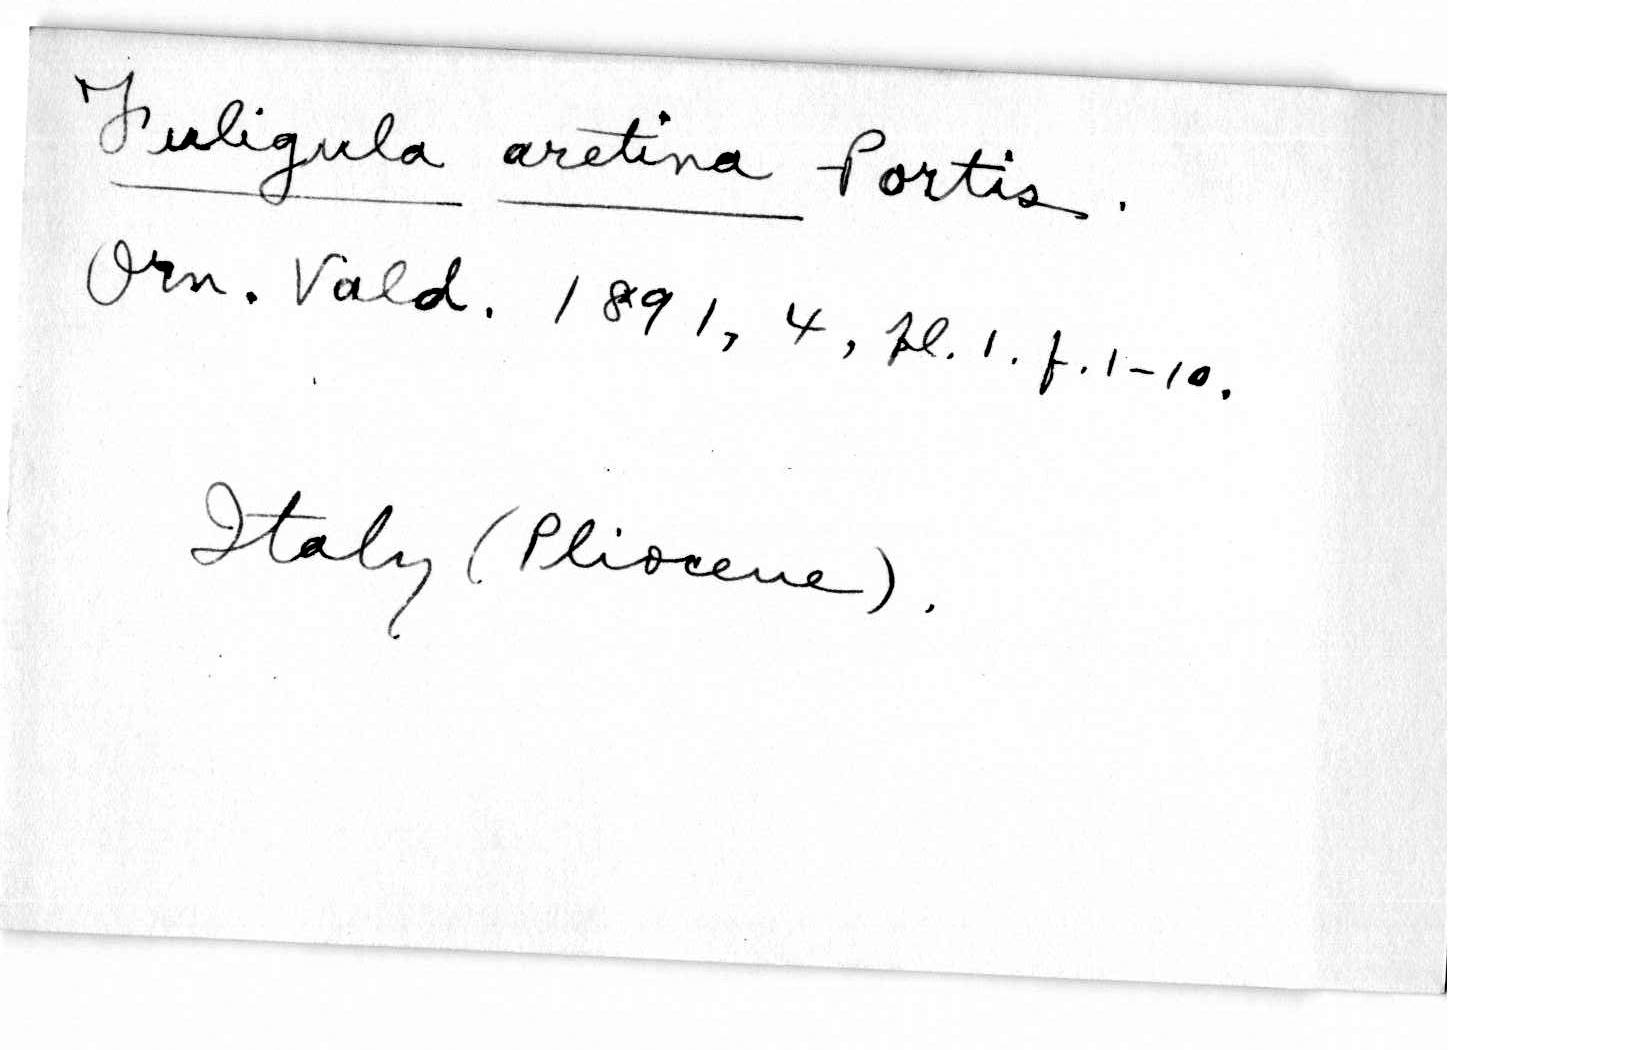 Fuligula aretina Portis.
Orn. Vald. 1891, 4, pl. 1. f. 1-10.
Italy (Pliocene).